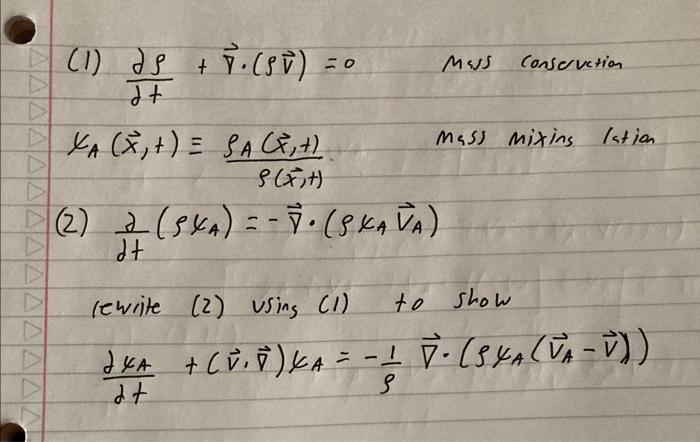 (1) ∂ρ/∂t + ∇⃗·(ρv⃗) = 0 Mass Conservation
χ_A(x⃗,t) ≡ ρ_A(x⃗,t)/ρ(x⃗,t) Mass Mixing ration
(2) ∂/∂t (ρχ_A) = -∇⃗·(ρχ_A V⃗_A)
rewrite (2) using (1) to show
∂χ_A/∂t + (v⃗·∇⃗)χ_A = -1/ρ ∇⃗·(ρχ_A(V⃗_A - V⃗))